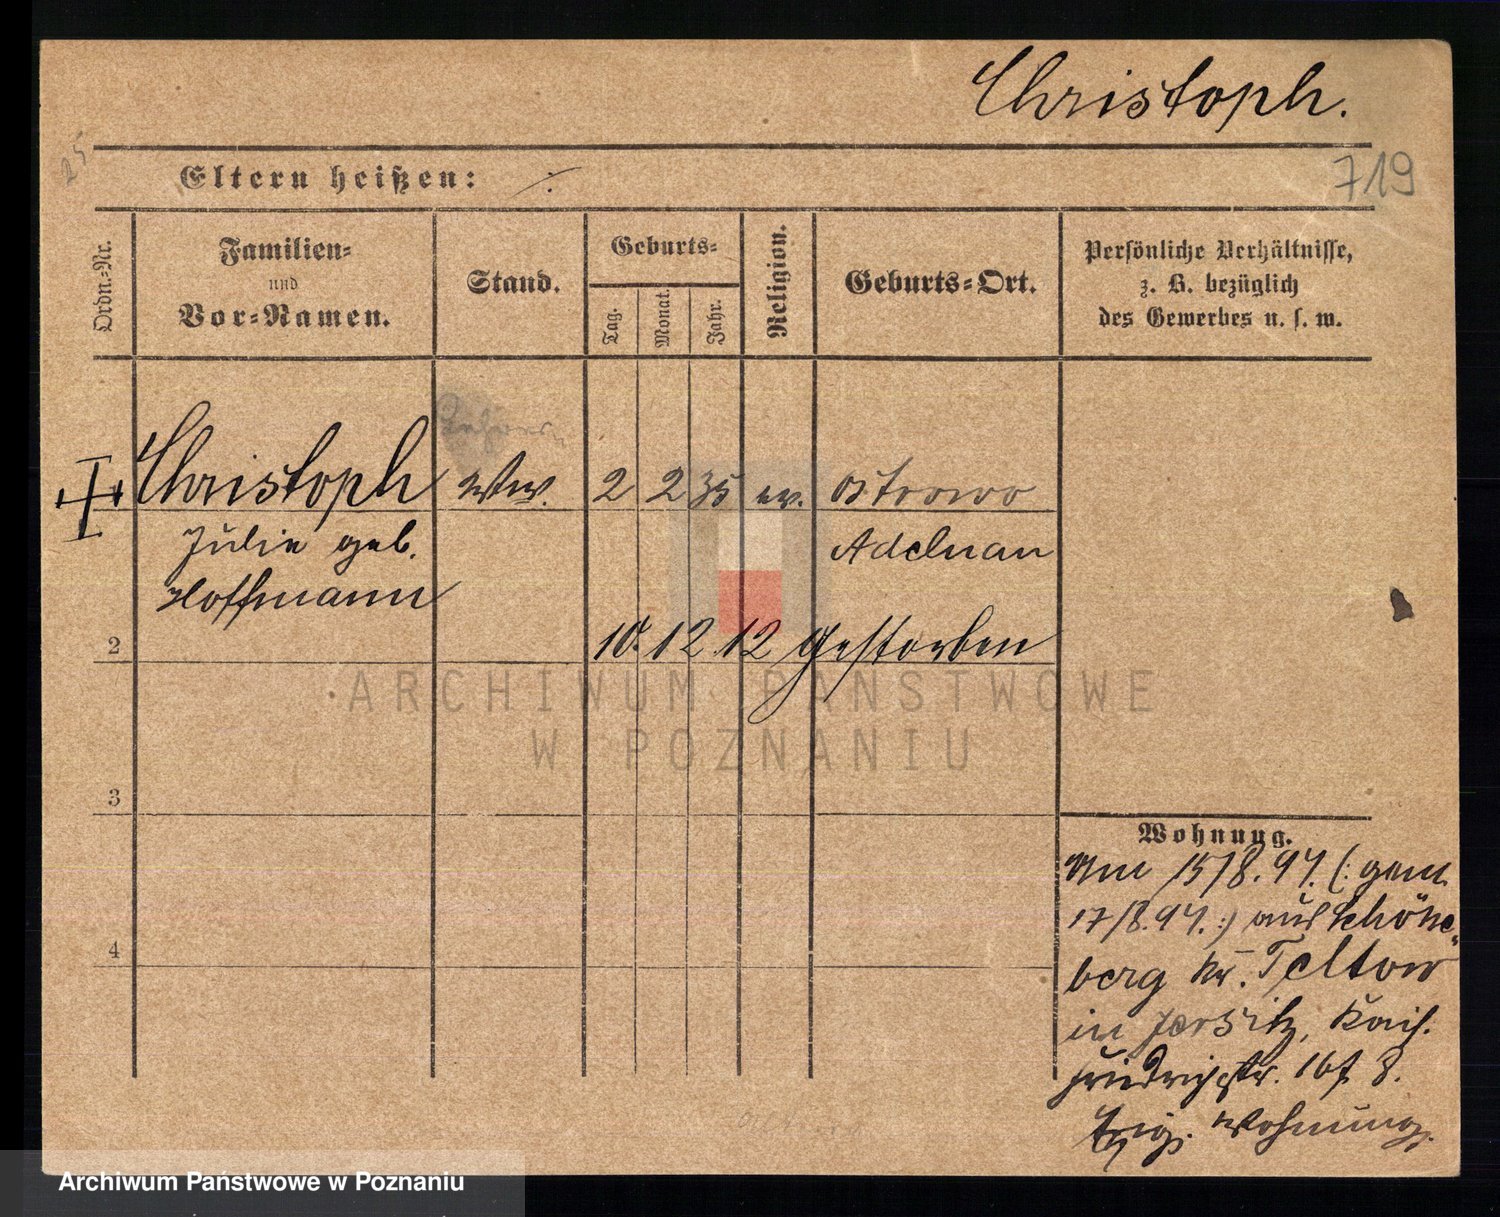 Christoph.
25
719
Eltern heißen: ./.
Ordn.-Nr.
Familien-
und
Vor-Namen.
Stand.
Geburts-
Tag.
Monat.
Jahr.
Religion.
Geburts-Ort.
Persönliche Verhältnisse,
z. B. bezüglich
des Gewerbes u. s. w.
Christoph Ww. 2 2 35 ev. Ostrowo
Julie geb. Adelnau
Hoffmann
2 10. 12 12 gestorben
ARCHIWUM PAŃSTWOWE
W POZNANIU
3
4
Wohnung.
Am 15/8. 97. (: gem.
17/8. 97. :) aus Schöne-
berg Kr. Teltow
in Jersitz, Kais.
Friedrichstr. 8.
Wohnung.
Archiwum Państwowe w Poznaniu